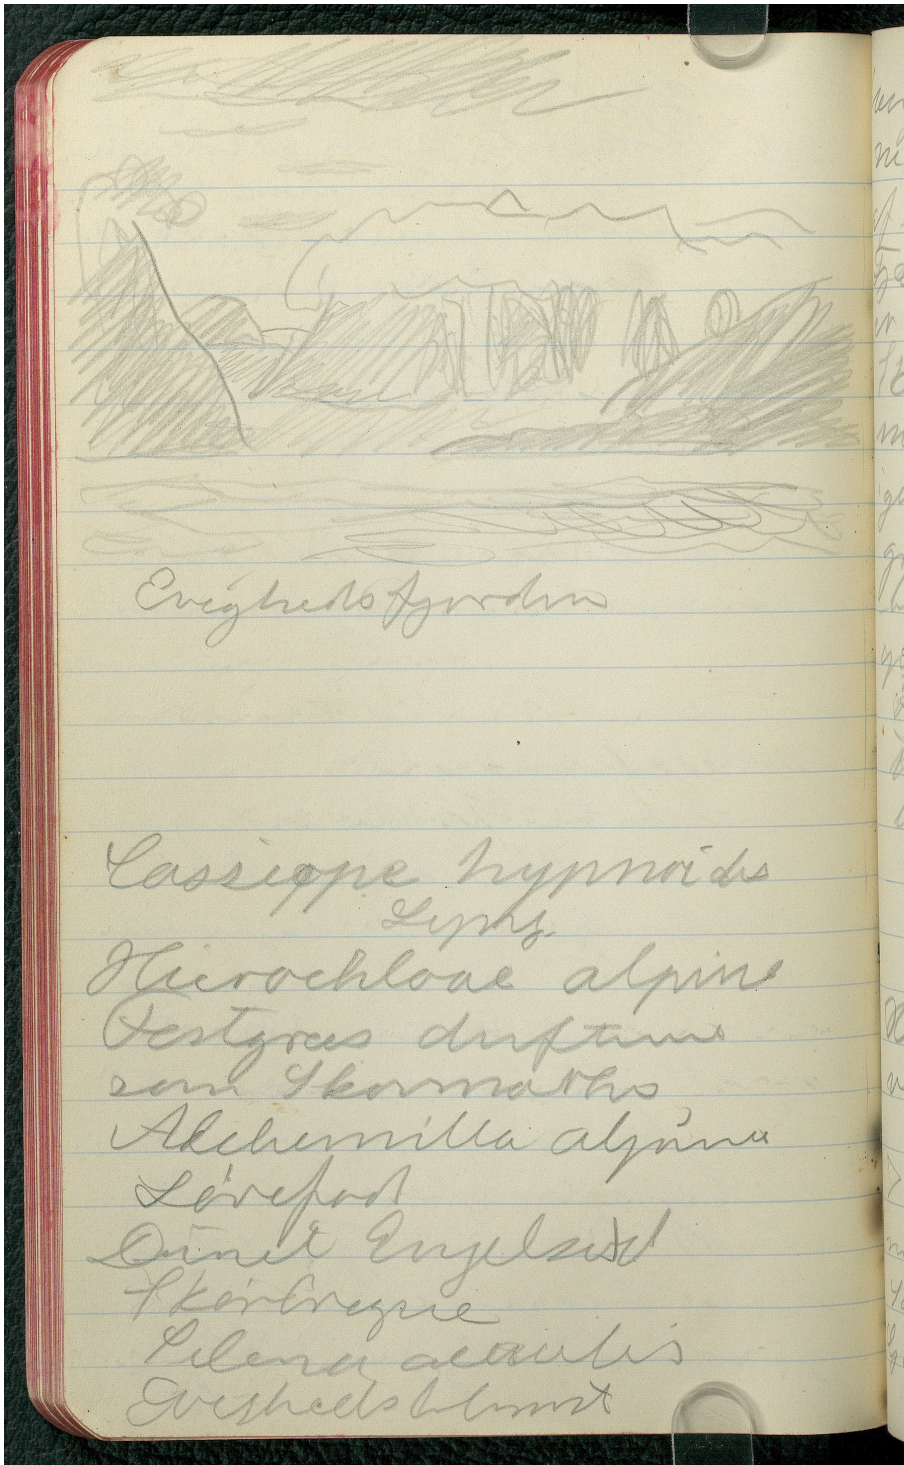 Evighedsfjorden
Cassiope hypnoides
Lyng
Hierochloae alpine
Festgræs duftende
som Skovmærke
Alchemilla alpina
Løvefod
Engelsød
Silena acaulis
Evighedsblomst